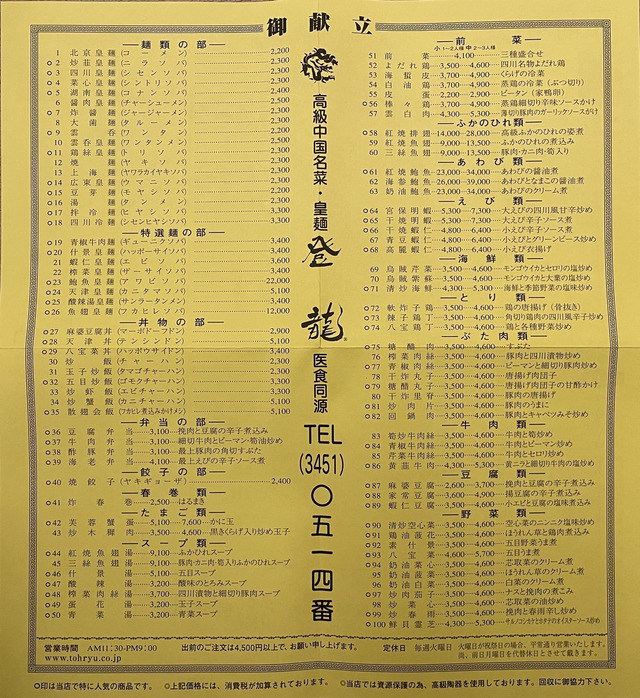 御献立
麺類の部
1 北京皇麺(コーメン) 2,200
○2 炒韮皇麺(ニラソバ) 2,300
○3 四川皇麺(シセンソバ) 2,300
○4 菜心皇麺(シントリソバ) 2,400
○5 湖南皇麺(コナンソバ) 2,400
6 醤肉皇麺(チャーシューメン) 2,500
○7 炸醤麺(ジャージャーメン) 2,300
8 大鹵麺(タルーメン) 2,300
○9 雲呑(ワンタン) 2,200
10 雲呑皇麺(ワンタンメン) 2,500
○11 鶏絲皇麺(トリソバ) 2,300
12 焼麺(ヤキソバ) 2,300
13 上海麺(ヤワラカイヤキソバ) 2,300
○14 広東皇麺(ウマニソバ) 2,300
○15 豆芽麺(モヤシソバ) 2,200
○16 湯麺(タンメン) 2,300
○17 拌冷麺(ヒヤシソバ) 3,300
○18 四川冷麺(シセンヒヤシソバ) 3,300
特選麺の部
○19 青椒牛肉麺(ギューニクソバ) 3,400
○20 什景皇麺(ハッポーサイソバ) 3,400
21 蝦仁皇麺(エビソバ) 3,600
22 榨菜皇麺(ザーサイソバ) 3,400
○23 鮑魚皇麺(アワビソバ) 22,000
○24 天津皇麺(カニタマソバ) 5,100
○25 酸辣湯皇麺(サンラータンメン) 3,400
○26 魚翅皇麺(フカヒレソバ) 12,000
丼物の部
○27 麻婆豆腐丼(マーボドーフドン) 2,900
○28 天津丼(テンシンドン) 5,100
○29 八宝菜丼(ハッポウサイドン) 3,400
30 炒飯(チャーハン) 2,300
31 玉子炒飯(タマゴチャーハン) 2,300
○32 五目炒飯(ゴモクチャーハン) 3,300
33 炒蝦飯(エビチャーハン) 3,300
34 炒蟹飯(カニチャーハン) 5,100
○35 散翅会飯(フカヒレ煮込みかけメシ) 5,100
弁当の部
○36 豆腐弁当 3,100 挽肉と豆腐の辛子煮込み
○37 牛肉弁当 3,100 細切牛肉とピーマン・筍油炒め
○38 酢豚弁当 3,100 最上豚肉の角切すぶた
○39 海老弁当 4,100 最上えびの辛子ソース煮
餃子の部
○40 焼餃子(ヤキギョーザ) 2,400
春巻類
○41 炸春巻 2,500 はるまき
たまご類
○42 芙蓉蟹蛋 5,100 7,600 かに玉
43 炒木樨肉 3,500 4,600 黒きくらげ入り炒め玉子
スープ類
○44 紅焼魚翅湯 9,100 ふかひれスープ
45 三絲魚翅湯 9,100 豚肉・カニ肉・筍入りふかひれスープ
○46 什景湯 5,100 五目スープ
○47 酸辣湯 3,200 酸味のとろみスープ
○48 榨菜肉絲湯 3,700 四川漬物と細切り豚肉スープ
○49 蛋花湯 3,200 玉子スープ
○50 青菜湯 3,200 青菜スープ
高級中国名菜・皇麺
登龍
医食同源
TEL
(3451)
〇五一四番
前菜
小 1~2人様 中 2~3人様
51 前菜 4,100 三種盛合せ
○52 よだれ鶏 3,500 4,600 四川名物よだれ鶏
53 海蜇皮 3,700 4,900 くらげの冷菜
54 白油鶏 3,700 4,900 蒸鶏の冷菜(ぶつ切り)
55 皮蛋 2,200 2,900 ピータン(家鴨卵)
○56 棒々鶏 3,700 4,900 蒸鶏細切り辛味ソースかけ
57 雲白肉 4,300 5,300 薄切り豚肉のガーリックソースがけ
ふかのひれ類
○58 紅焼排翅 14,000 28,000 高級ふかのひれの姿煮
○59 紅焼魚翅 9,000 13,500 ふかひれの煮込み
60 三絲魚翅 9,000 13,500 豚肉・カニ肉・筍入り
あわび類
○61 紅焼鮑魚 23,000 34,000 あわびの醤油煮
62 海参鮑魚 26,000 39,000 あわびとなまこの醤油煮
63 奶油鮑魚 23,000 34,000 あわびのクリーム煮
えび類
○64 宮保明蝦 5,300 7,300 大えびの四川風甘辛炒め
○65 干焼明蝦 5,300 7,300 大えび辛子ソース煮
○66 干焼蝦仁 4,800 6,400 小えび辛子ソース煮
67 青豆蝦仁 4,800 6,400 小えびとグリーンピース炒め
○68 高麗蝦仁 4,800 6,400 小えび衣揚げ
海鮮類
○69 烏賊芹菜 3,500 4,600 モンゴウイカとセロリの塩炒め
○70 烏賊紫蘇 3,500 4,600 モンゴウイカと大葉の塩炒め
○71 清炒海鮮 4,300 5,300 海鮮と季節野菜の塩味炒め
とり類
○72 軟炸子鶏 3,500 4,600 鶏の唐揚げ(骨抜き)
○73 辣子鶏丁 3,500 4,600 角切り鶏肉の四川風辛子炒め
○74 八宝鶏丁 3,500 4,600 鶏と各種野菜炒め
ぶた肉類
○75 糖醋肉 3,500 4,600 すぶた
○76 榨菜肉絲 3,500 4,600 豚肉と四川漬物炒め
○77 青椒肉絲 3,500 4,600 ピーマンと細切り豚肉炒め
○78 干炸丸子 3,500 4,600 唐揚げ肉団子
○79 糖醋丸子 3,500 4,600 唐揚げ肉団子の甘酢かけ
○80 干炸里脊 3,500 4,600 豚肉の唐揚げ
○81 炒肉片 3,500 4,600 豚肉のうまに
○82 回鍋肉 3,500 4,600 豚肉とキャベツみそ炒め
牛肉類
○83 筍炒牛肉絲 3,500 4,600 牛肉と筍炒め
○84 青椒牛肉絲 3,500 4,600 牛肉とピーマン炒め
○85 芹菜牛肉絲 3,500 4,600 牛肉とセロリ炒め
○86 黄韮牛肉 4,300 5,300 黄ニラと細切り牛肉の塩炒め
豆腐類
○87 麻婆豆腐 2,600 3,700 挽肉と豆腐の辛子煮込み
○88 家常豆腐 3,600 4,900 揚豆腐の辛子煮込み
○89 蝦仁豆腐 3,500 4,600 小エビと豆腐の塩味煮込み
野菜類
○90 清炒空心菜 3,500 4,600 空心菜のニンニク塩味炒め
○91 鶏油菠菜 3,500 4,600 ほうれん草と鶏肉煮込み
○92 素什景 3,500 4,600 五目野菜うま煮
○93 八宝菜 4,600 5,700 五目うま煮
○94 奶油菜心 3,500 4,600 芯取菜のクリーム煮
○95 奶油菠菜 3,500 4,600 ほうれん草のクリーム煮
○96 奶油白菜 3,500 4,600 白菜のクリーム煮
○97 炒肉茄子 3,500 4,600 ナスと挽肉の煮こみ
○98 炒菜心 3,500 4,600 芯取菜の油炒め
○99 炒春雨 3,500 4,600 挽肉と春雨辛し炒め
○100 鮮貝露芝 4,300 5,300 サルノコシカケとホタテのオイスターソース炒め
営業時間 AM11:30-PM9:00
www.tohryu.co.jp
出前のご注文は4,500円以上で、お願い申し上げます。
定休日 毎週火曜日
火曜日が祝祭日の場合、平常通り営業いたします。
尚、前日月曜日を代替休日とさせて戴きます。
○印は当店で特に人気の商品です。 ○上記価格には、消費税が加算されております。 ○当店では資源保護の為、高級陶器を使用しております。回収に御協力下さい。